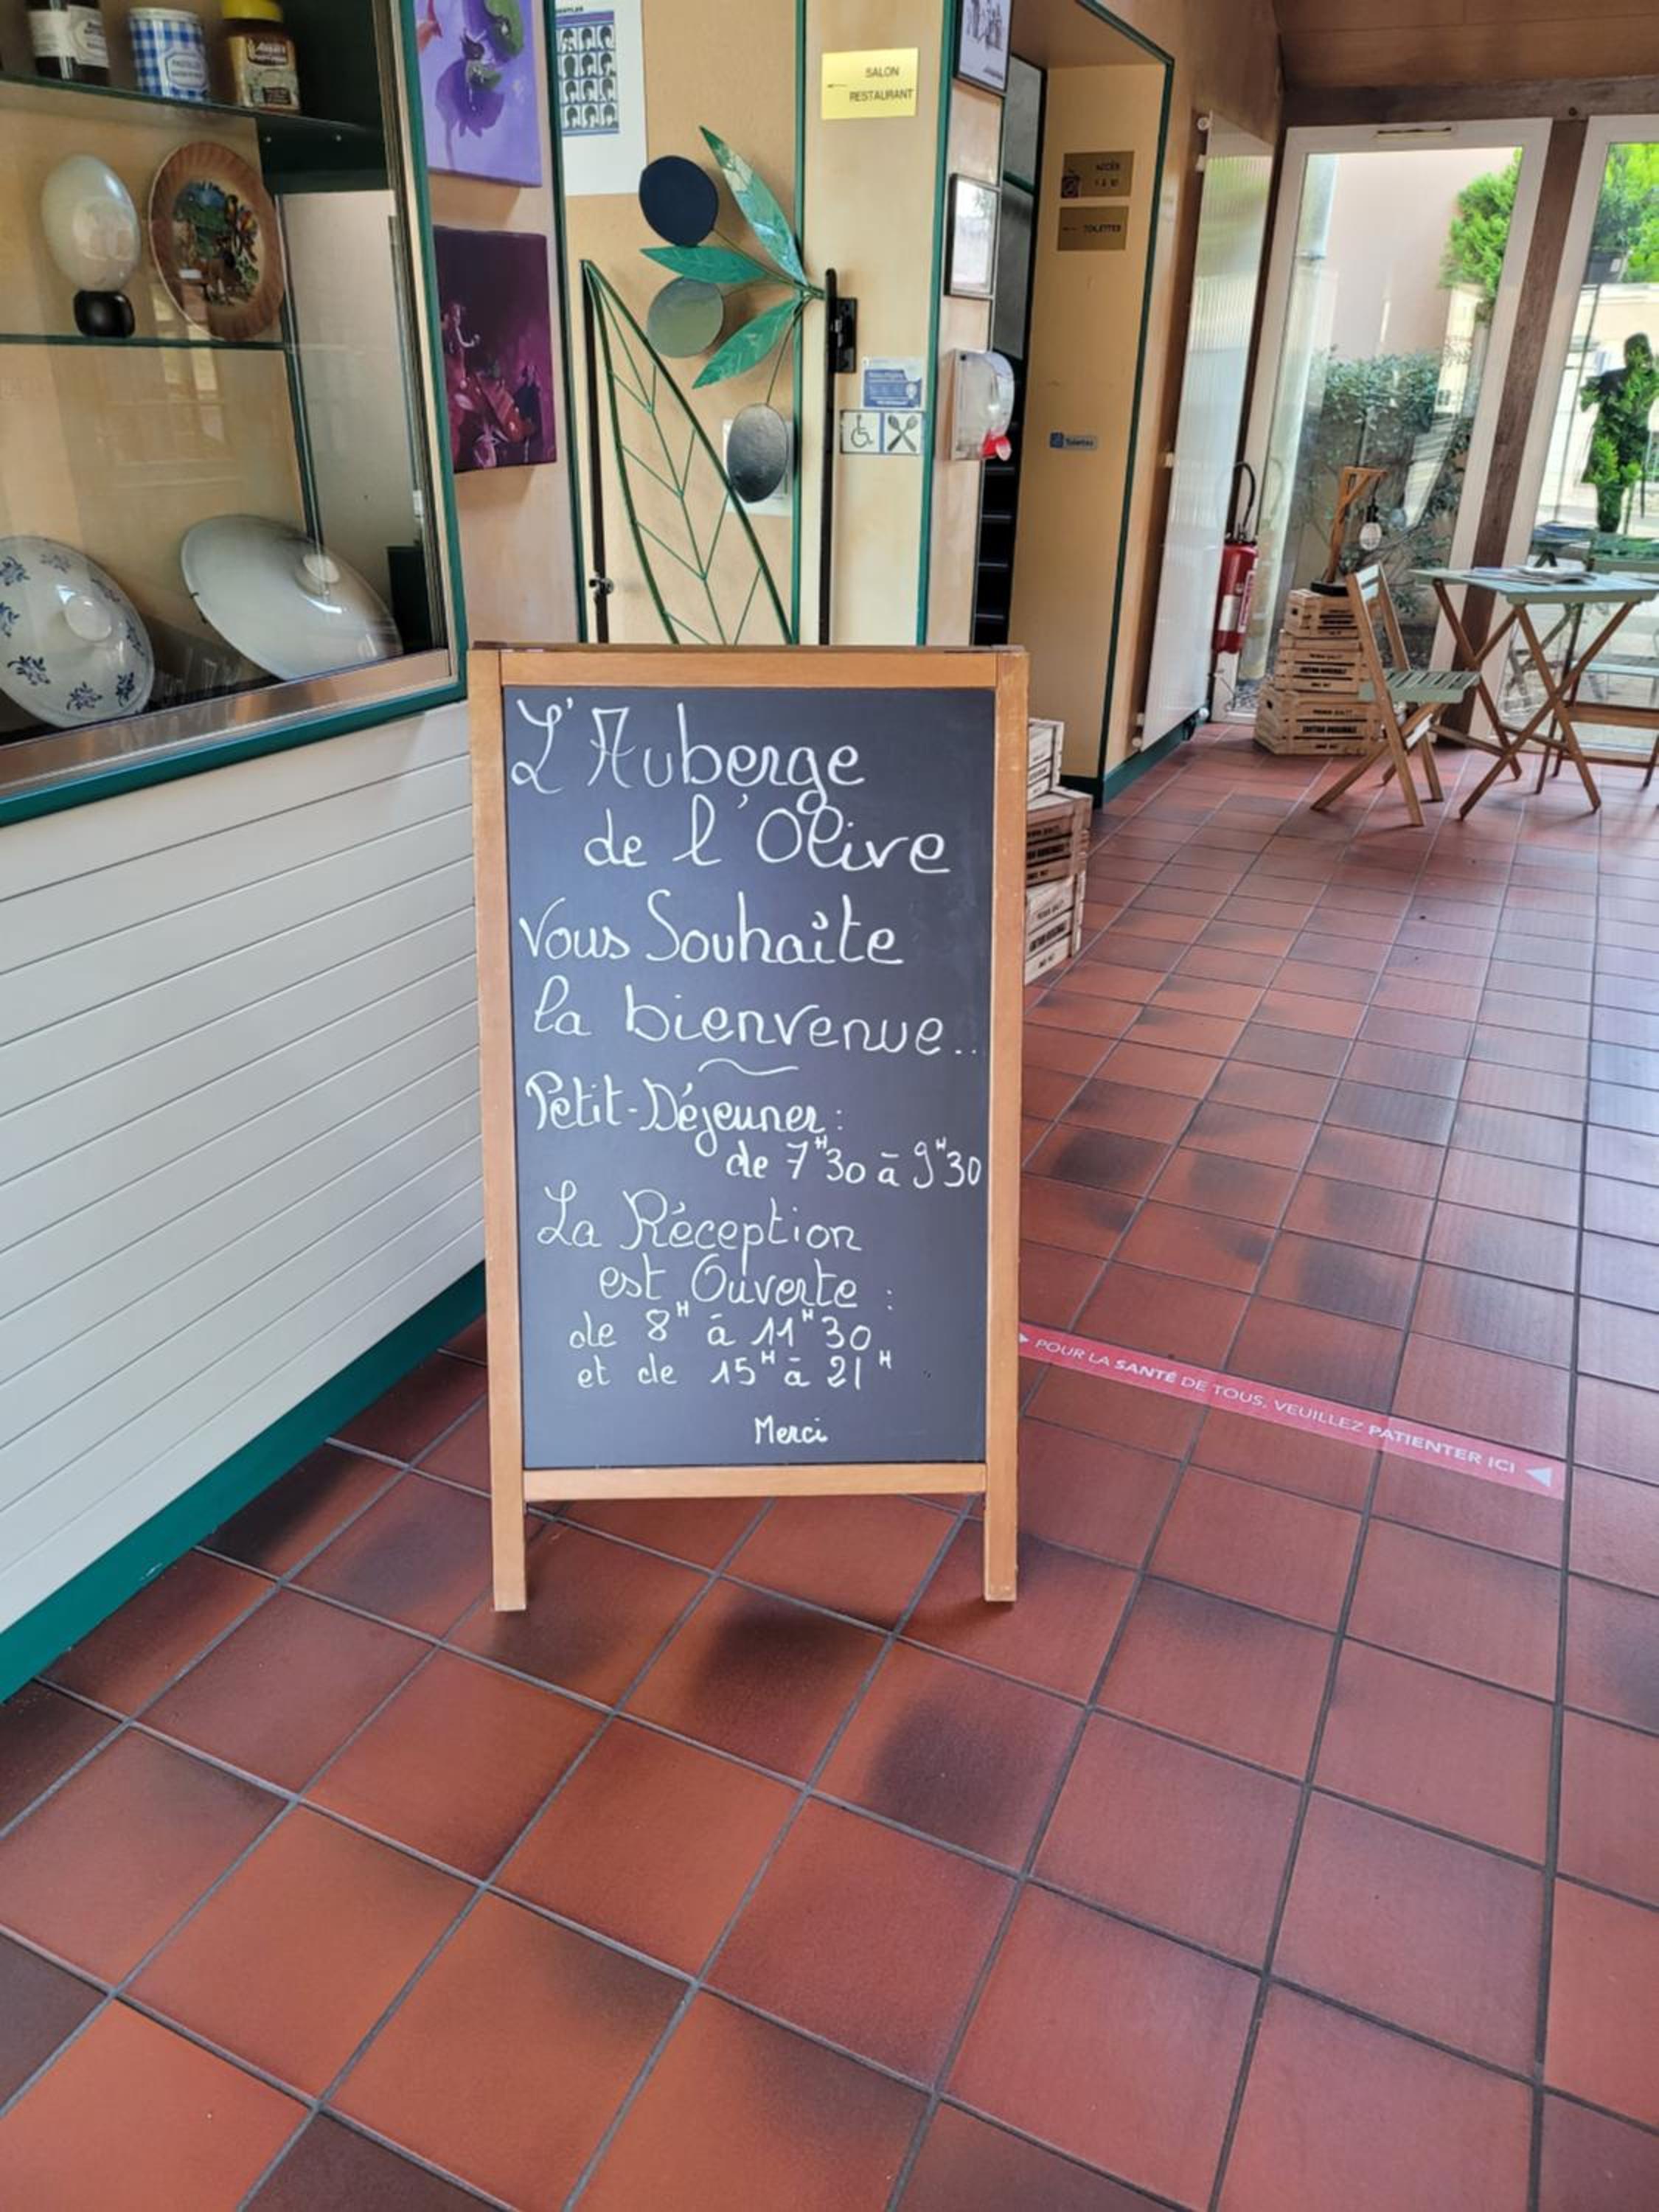 SALON
RESTAURANT
ACCÈS
1 à 10
TOILETTES
L'Auberge
de l'Olive
Vous Souhaite
la bienvenue..
Petit-Déjeuner :
de 7H30 à 9H30
La Réception
est Ouverte :
de 8H à 11H30
et de 15H à 21H
Merci
POUR LA SANTÉ DE TOUS, VEUILLEZ PATIENTER ICI